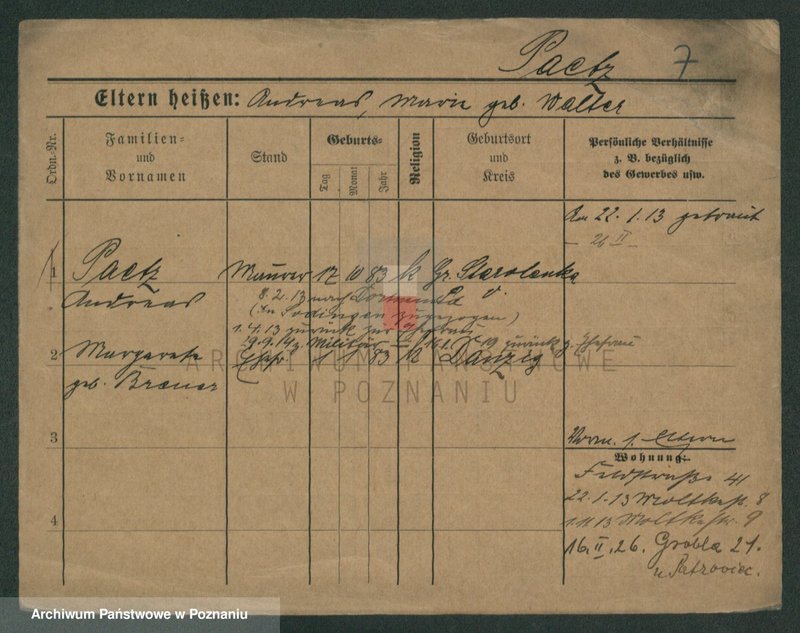 Paetz 7
Eltern heißen: Andreas, Marie geb. Walter
Ordn.-Nr.
Familien- und Vornamen
Stand
Geburts-
Tag
Monat
Jahr
Religion
Geburtsort und Kreis
Persönliche Verhältnisse z. B. bezüglich des Gewerbes usw.
Am 22. 1. 13 getraut
26 II
1 Paetz Maurer 17 10 83 k Gr. Starolenka
Andreas 8. 2. 13 nach Dortmund
(In Sodingen zugezogen)
1. 4. 13 zurück zur Ehefrau
Militär 19 zurück z. Ehefrau
2 Margarete Ehefr. 1 1 83 k Danzig
geb. Brener
ARCHIWUM PAŃSTWOWE
W POZNANIU
3
Vorm. s. Eltern
Wohnung:
Feldstraße 41
22. 1. 13 Moltkestr. 8
1. 11. 13 Moltkestr. 9
4
16. II. 26. Grobla 21.
Archiwum Państwowe w Poznaniu